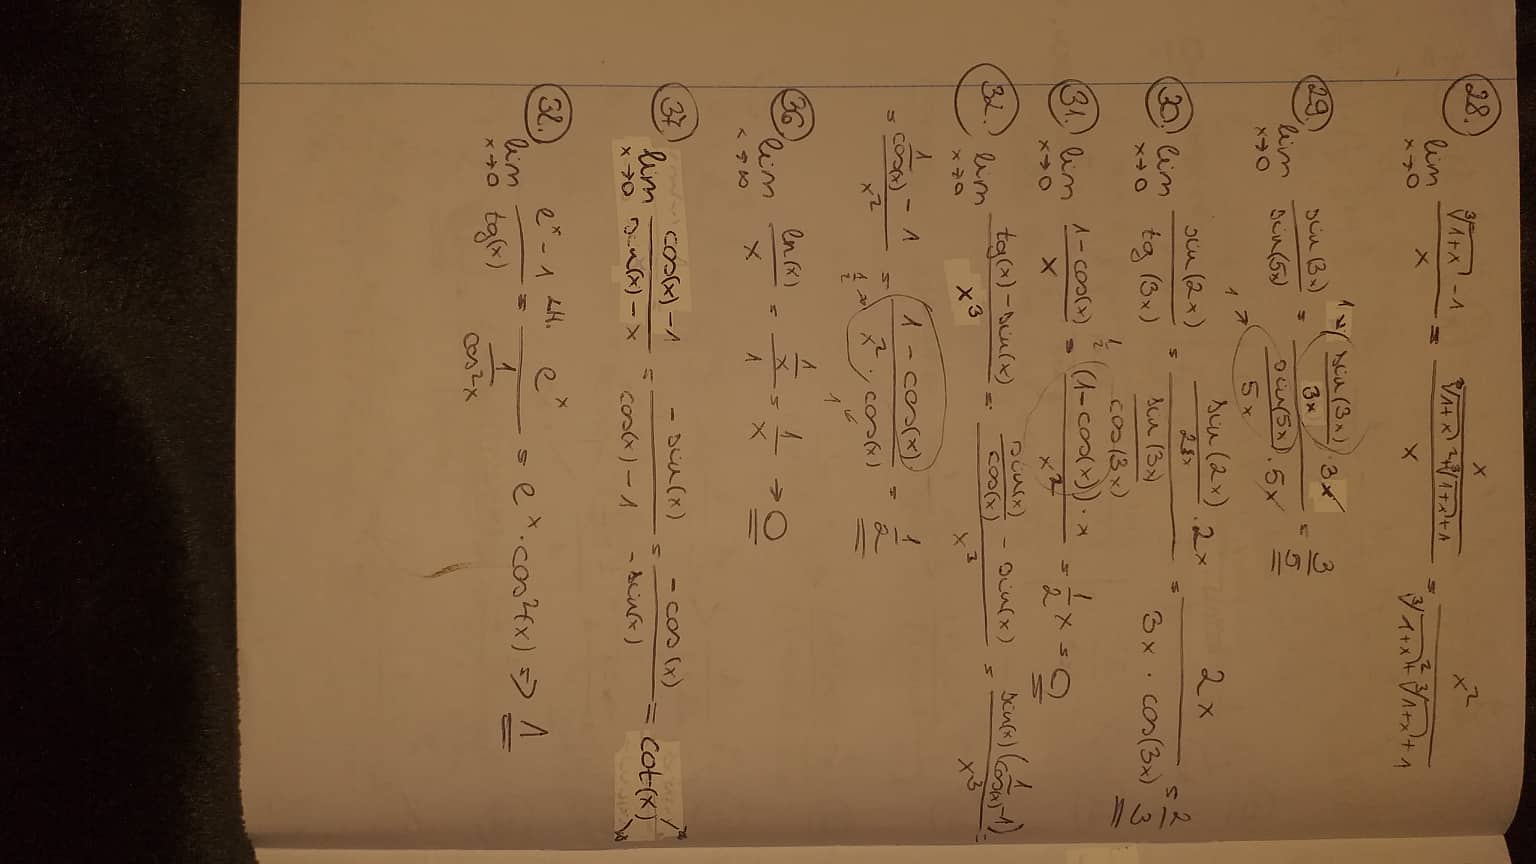 28. lim x→0 (∛(1+x) - 1)/x = (x/(∛(1+x)²+∛(1+x)+1))/x = x²/(∛(1+x)²+∛(1+x)+1)
29. lim x→0 sin(3x)/sin(5x) = (sin(3x)/3x · 3x)/(sin(5x)/5x · 5x) = 3/5
30. lim x→0 sin(2x)/tg(3x) = (sin(2x)/2x · 2x)/(sin(3x)/cos(3x)) = 2x/(3x · cos(3x)) = 2/3
31. lim x→0 (1-cos(x))/x = ((1-cos(x)) · x)/x² = 1/2 x = 0
32. lim x→0 (tg(x) - sin(x))/x³ = (sin(x)/cos(x) - sin(x))/x³ = sin(x)(1/cos(x) - 1)/x³ =
= (1/cos(x) - 1)/x² = (1 - cos(x))/(x² · cos(x)) = 1/2
36. lim x→∞ ln(x)/x = (1/x)/1 = 1/x → 0
37. lim x→0 (cos(x) - 1)/(sin(x) - x) = -sin(x)/(cos(x) - 1) = -cos(x)/-sin(x) = cot(x)
38. lim x→0 (e^x - 1)/tg(x) L'H. = e^x/(1/cos²x) = e^x · cos²(x) => 1